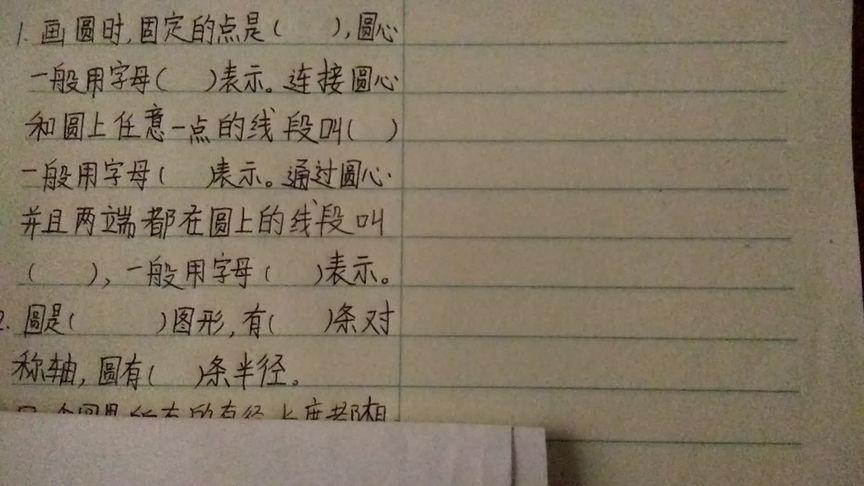 1. 画圆时,固定的点是(    ),圆心
一般用字母(    )表示。连接圆心
和圆上任意一点的线段叫(    )
一般用字母(    )表示。通过圆心
并且两端都在圆上的线段叫
(    ),一般用字母(    )表示。
2. 圆是(    )图形,有(    )条对
称轴,圆有(    )条半径。